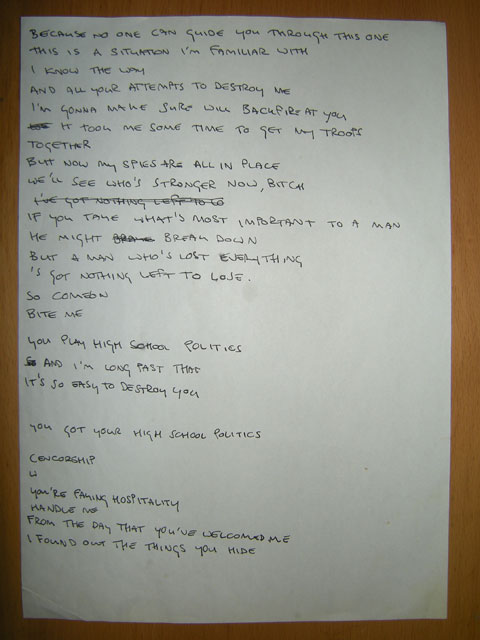 BECAUSE NO ONE CAN GUIDE YOU THROUGH THIS ONE
THIS IS A SITUATION I'M FAMILIAR WITH
I KNOW THE WAY
AND ALL YOUR ATTEMPTS TO DESTROY ME
I'M GONNA MAKE SURE WILL BACKFIRE AT YOU
IT TOOK ME SOME TIME TO GET MY TROOPS
TOGETHER
BUT NOW MY SPIES ARE ALL IN PLACE
WE'LL SEE WHO'S STRONGER NOW, BITCH
I'VE GOT NOTHING LEFT TO LO
IF YOU TAKE WHAT'S MOST IMPORTANT TO A MAN
HE MIGHT BREAK DOWN
BUT A MAN WHO'S LOST EVERYTHING
'S GOT NOTHING LEFT TO LOSE.
SO COMEON
BITE ME
YOU PLAY HIGH SCHOOL POLITICS
AND I'M LONG PAST THAT
IT'S SO EASY TO DESTROY YOU
YOU GOT YOUR HIGH SCHOOL POLITICS
CENCORSHIP
YOU'RE FAKING HOSPITALITY
HANDLE ME
FROM THE DAY THAT YOU'VE WELCOMED ME
I FOUND OUT THE THINGS YOU HIDE